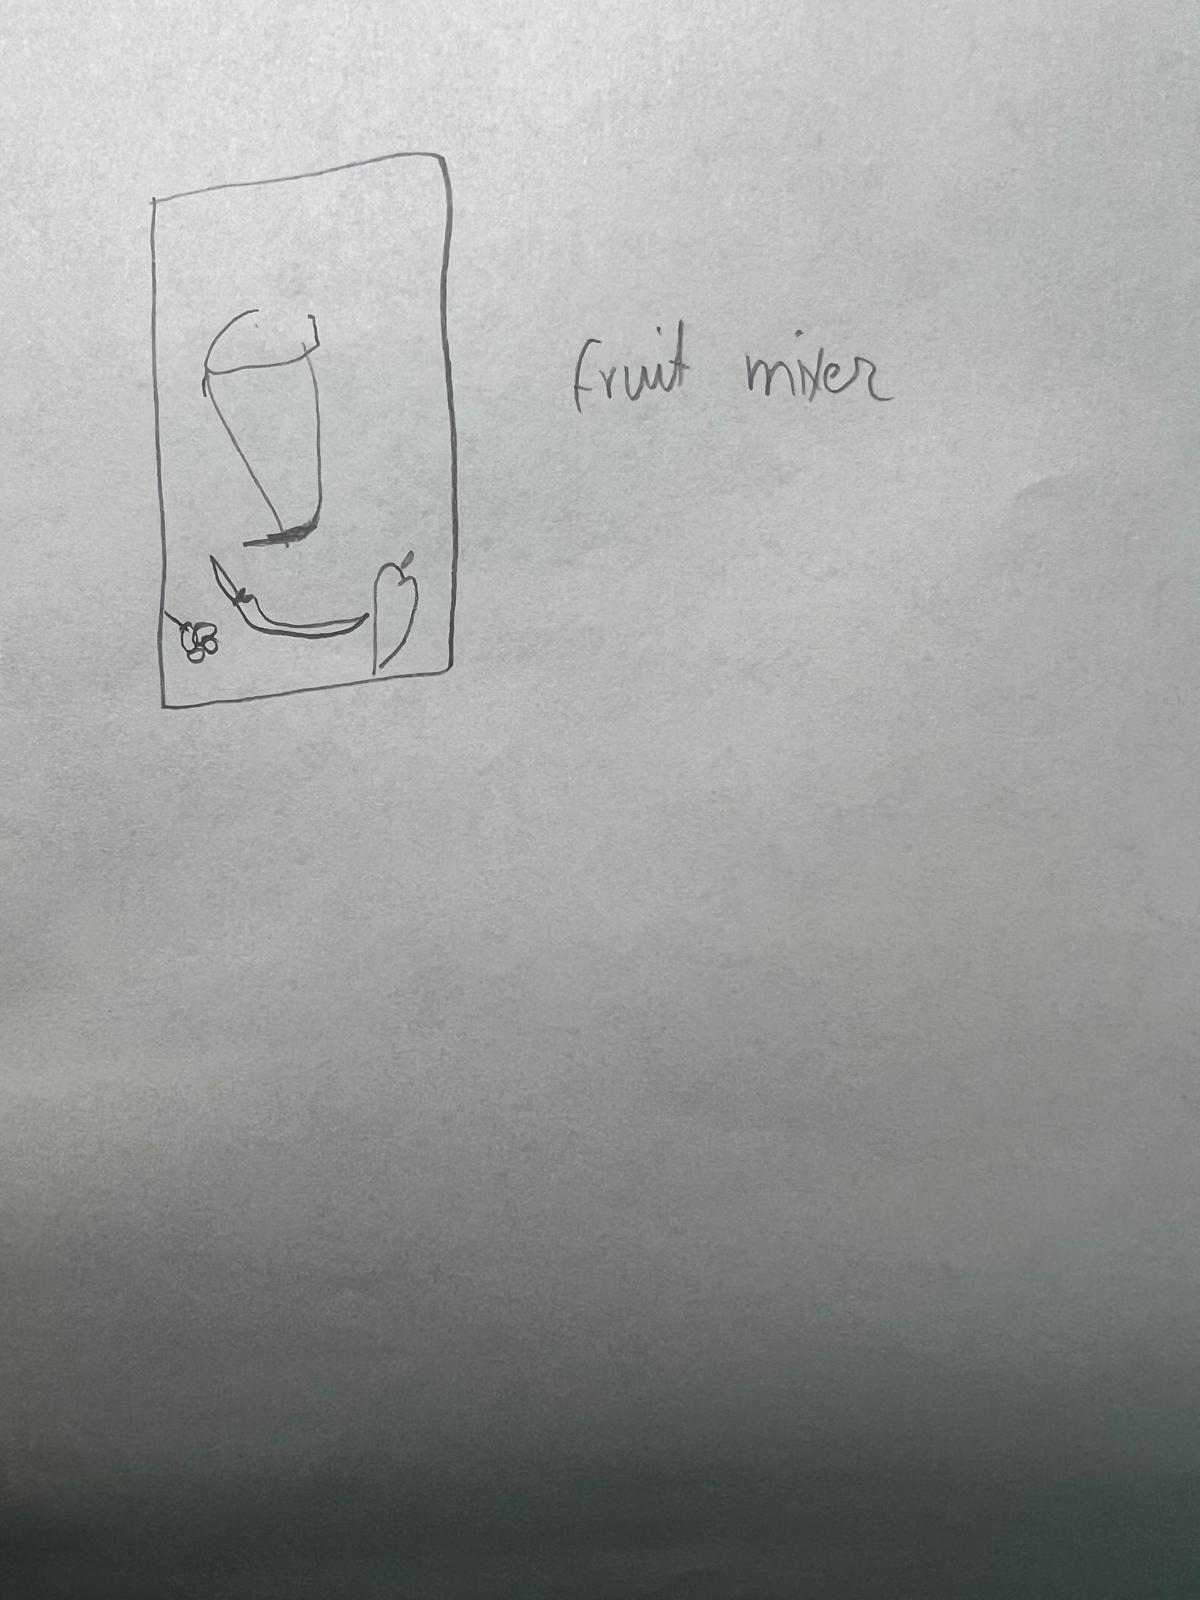 fruit mixer